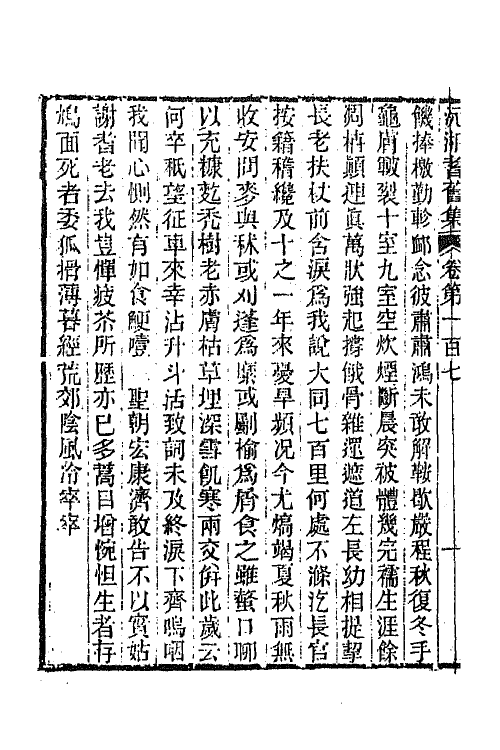 沅湘耆舊集 卷第一百七 一
饑捧檄勤軫䘏念彼肅肅鴻未敢解鞍歇嚴程秋復冬手
龜膚皸裂十室九室空炊煙斷晨突被體幾完襦生涯餘
獨樹顛連眞萬狀強起撐餓骨雜遝遮道左長幼相提挈
長老扶杖前含淚爲我說大同七百里何處不滌汔長官
按籍稽纔及十之一年來憂旱頻况今尤熇竭夏秋雨無
收安問麥與秫或刈蓬爲藥或劚榆爲屑食之雖螫口聊
以充糠麧禿樹老赤膚枯草埋深雪飢寒兩交倂此歲云
何卒秪望征車來幸沾升斗活致詞未及終淚下齊嗚咽
我聞心惻然有如食鯁噎 聖朝宏康濟敢告不以實姑
謝耆老去我豈憚疲苶所歷亦已多蒿目增惋怛生者存
鳩面死者委狐搰薄暮經荒郊陰風冷窣窣